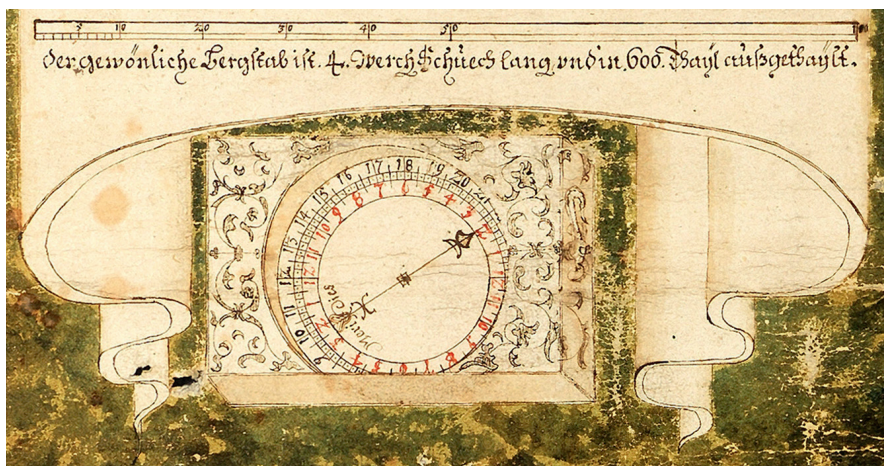 5 10 20 30 40 50 100
der gewönliche Bergstab ist. 4. Werch Schuech lang vnd in. 600. Thayl außgethaylt.
9 10 11 12 13 14 15 16 17 18 19 20 21
2 1 12 11 10 9 8 7 6 5 4 3 2 1 12 11 10 9 8 7 6 5 4 3